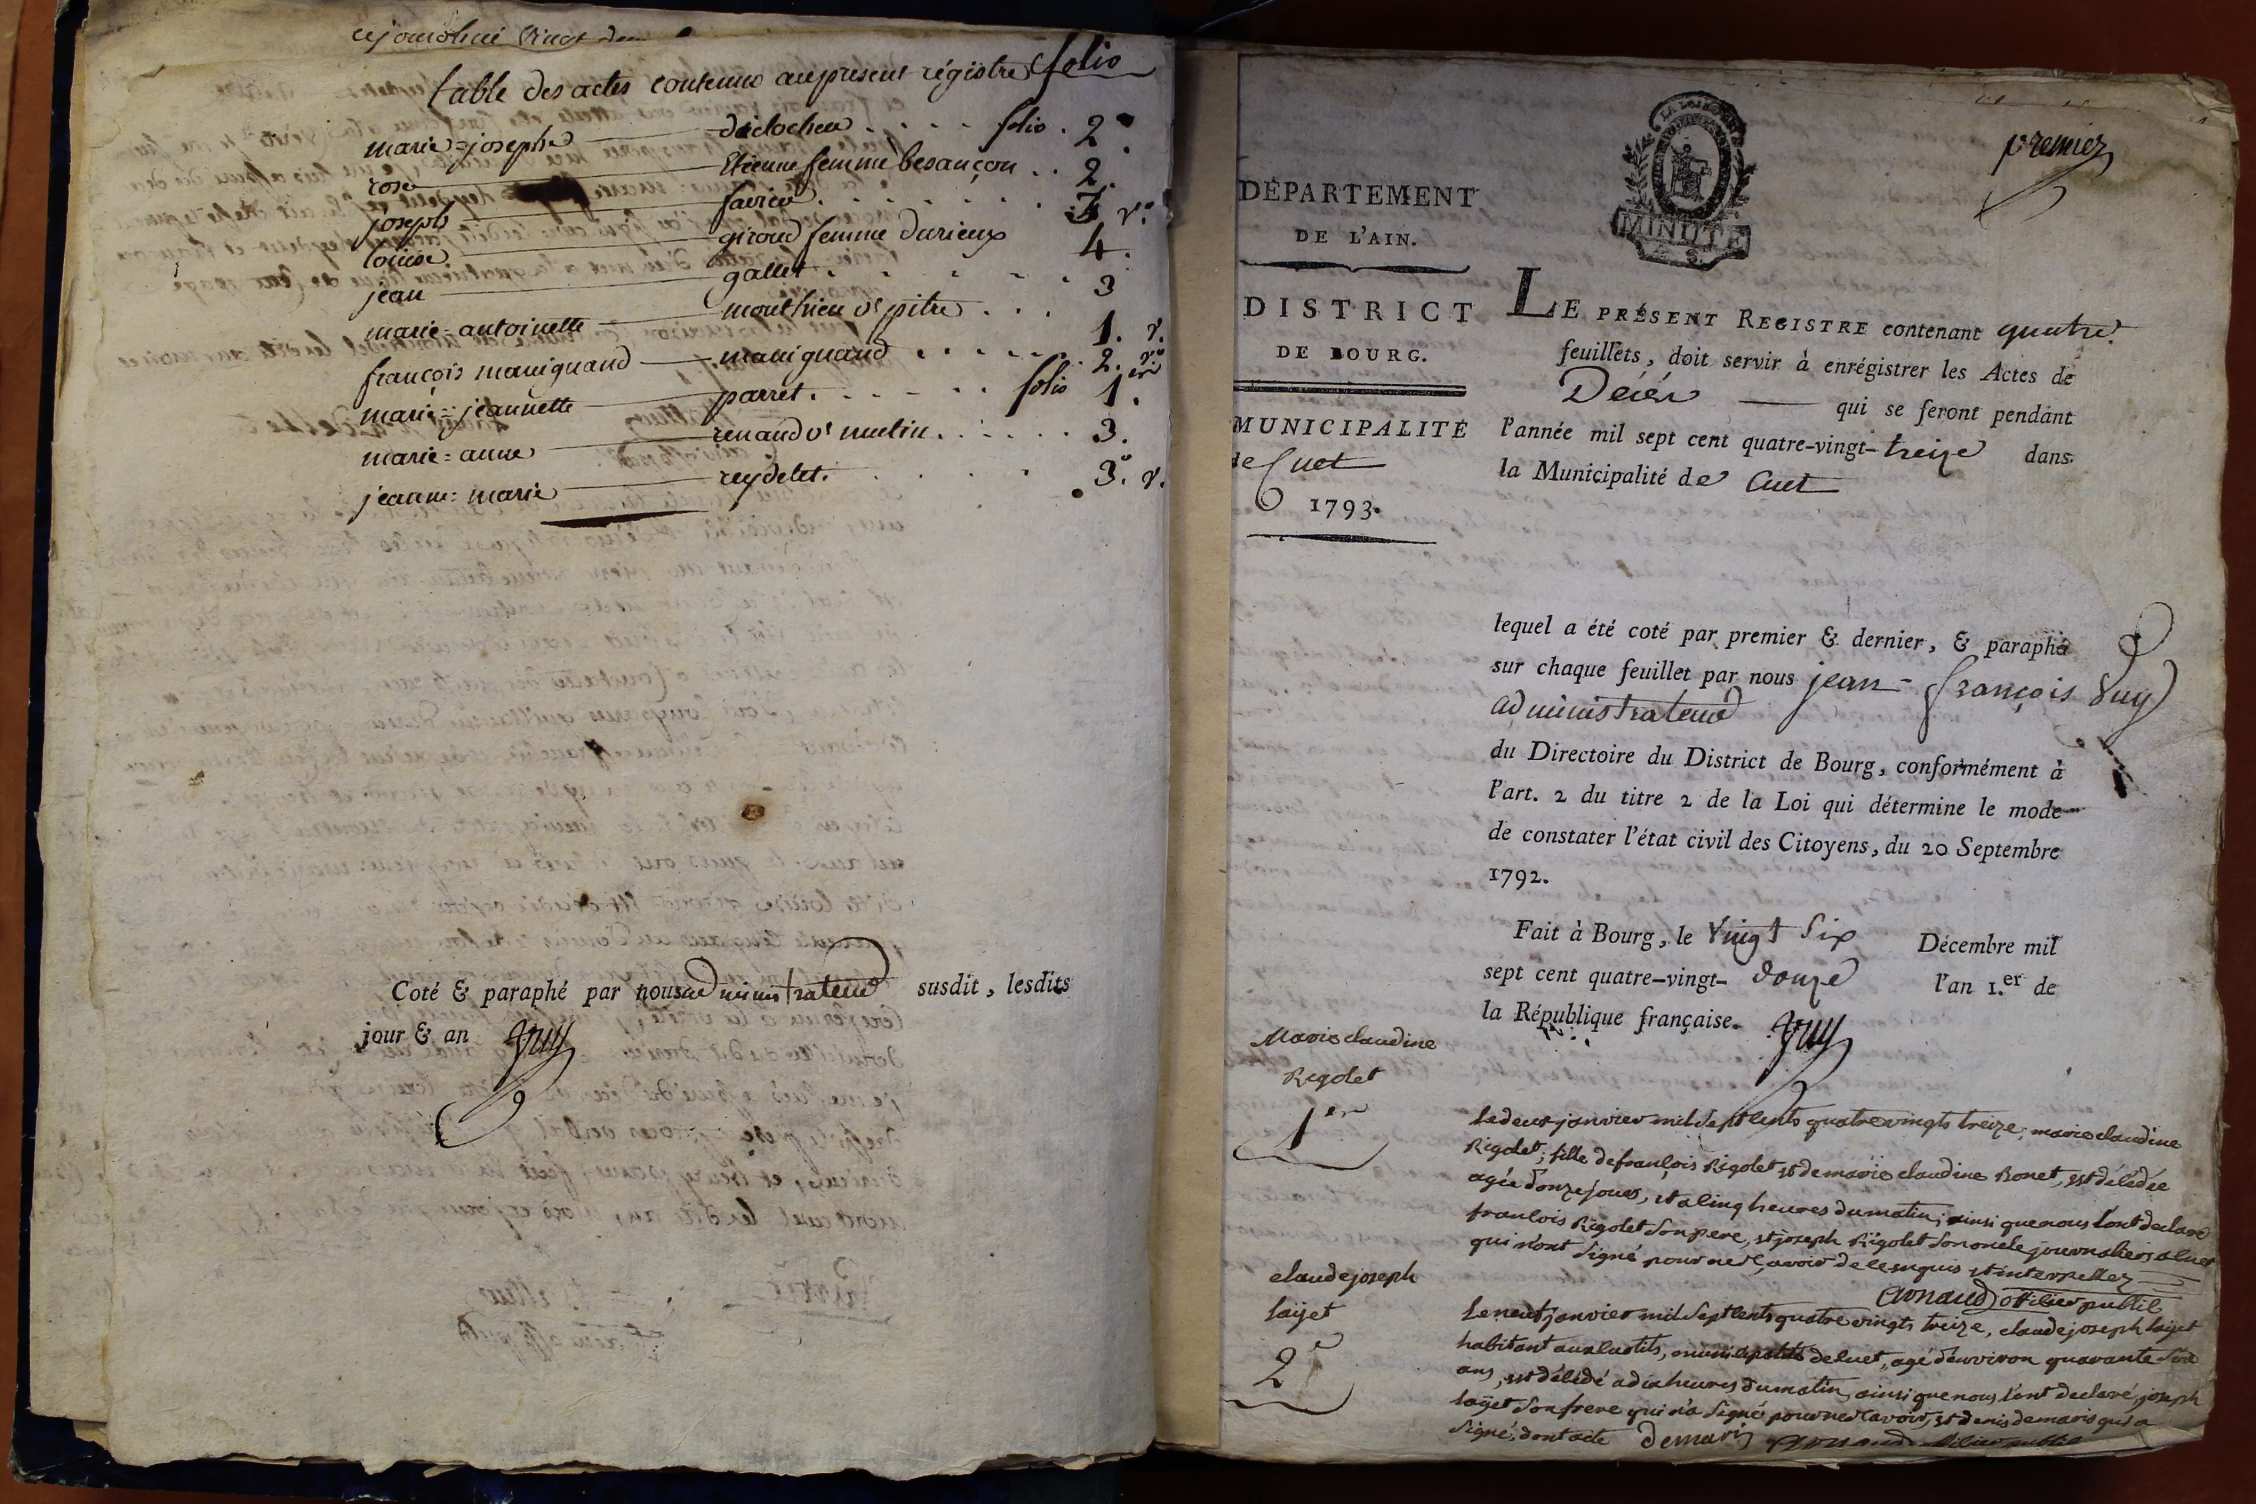 table des actes contenus au present régistre folio
marie=josephe declocheu . . . . folio . 2
rose Etienne femme besançon . . 2.
joseph favier . . . . . . . 3 v.o
louise giroud femme durieux 4.
jean gallet . . . . . . 3
marie=antoinette monthieu ve pitre . . . 1. v.
françois maniguand maniguand . . . . . 2. v.o
marie=jeannette parret . . . . . folio 1.
marie=anne renaud ve mutin . . . . . 3.
jeanne=marie reydelet . . . . . 3. v.
Coté & paraphé par nous administrateur susdit, lesdits
jour & an Puy
premier
LA LOI
MINUTE
DÉPARTEMENT
DE L'AIN.
DISTRICT
DE BOURG.
MUNICIPALITÉ
de Cuet
1793.
LE PRÉSENT REGISTRE contenant quatre
feuillets, doit servir à enrégistrer les Actes de
Décès qui se feront pendant
l'année mil sept cent quatre-vingt-treize dans
la Municipalité de Cuet
lequel a été coté par premier & dernier, & paraphé
sur chaque feuillet par nous jean-françois Puy
administrateur
du Directoire du District de Bourg, conformément à
l'art. 2 du titre 2 de la Loi qui détermine le mode
de constater l'état civil des Citoyens, du 20 Septembre
1792.
Fait à Bourg, le Vingt Six Décembre mil
sept cent quatre-vingt-douze l'an 1.er de
la République française. Puy
Marie claudine
Rigolet
1er
Le deux janvier mil Sept Cents quatre vingts treize, marie claudine
Rigolet, fille de françois Rigolet et de marie claudine Bonet, est décédée
agée d'onze jours, et a cinq heures du matin, ainsi que nous l'ont declaré
francois Rigolet Son pere, et joseph Rigolet Son oncle journaliers a Cuet
qui n'ont Signé pour ne l'avoir de ce enquis et interpellez
Arnaud officier public
claude joseph
layet
2e
Le neuf janvier mil Sept Cents quatre vingts treize, claude joseph layet
habitant aux municipalité de Cuet, agé d'environ quarante
ans, est décédé a dix heures du matin, ainsi que nous l'ont declaré, joseph
layet Son frere qui n'a Signé pour ne le savoir, et denis demaris qui a
Signé, dont acte Demaris Arnaud officier public